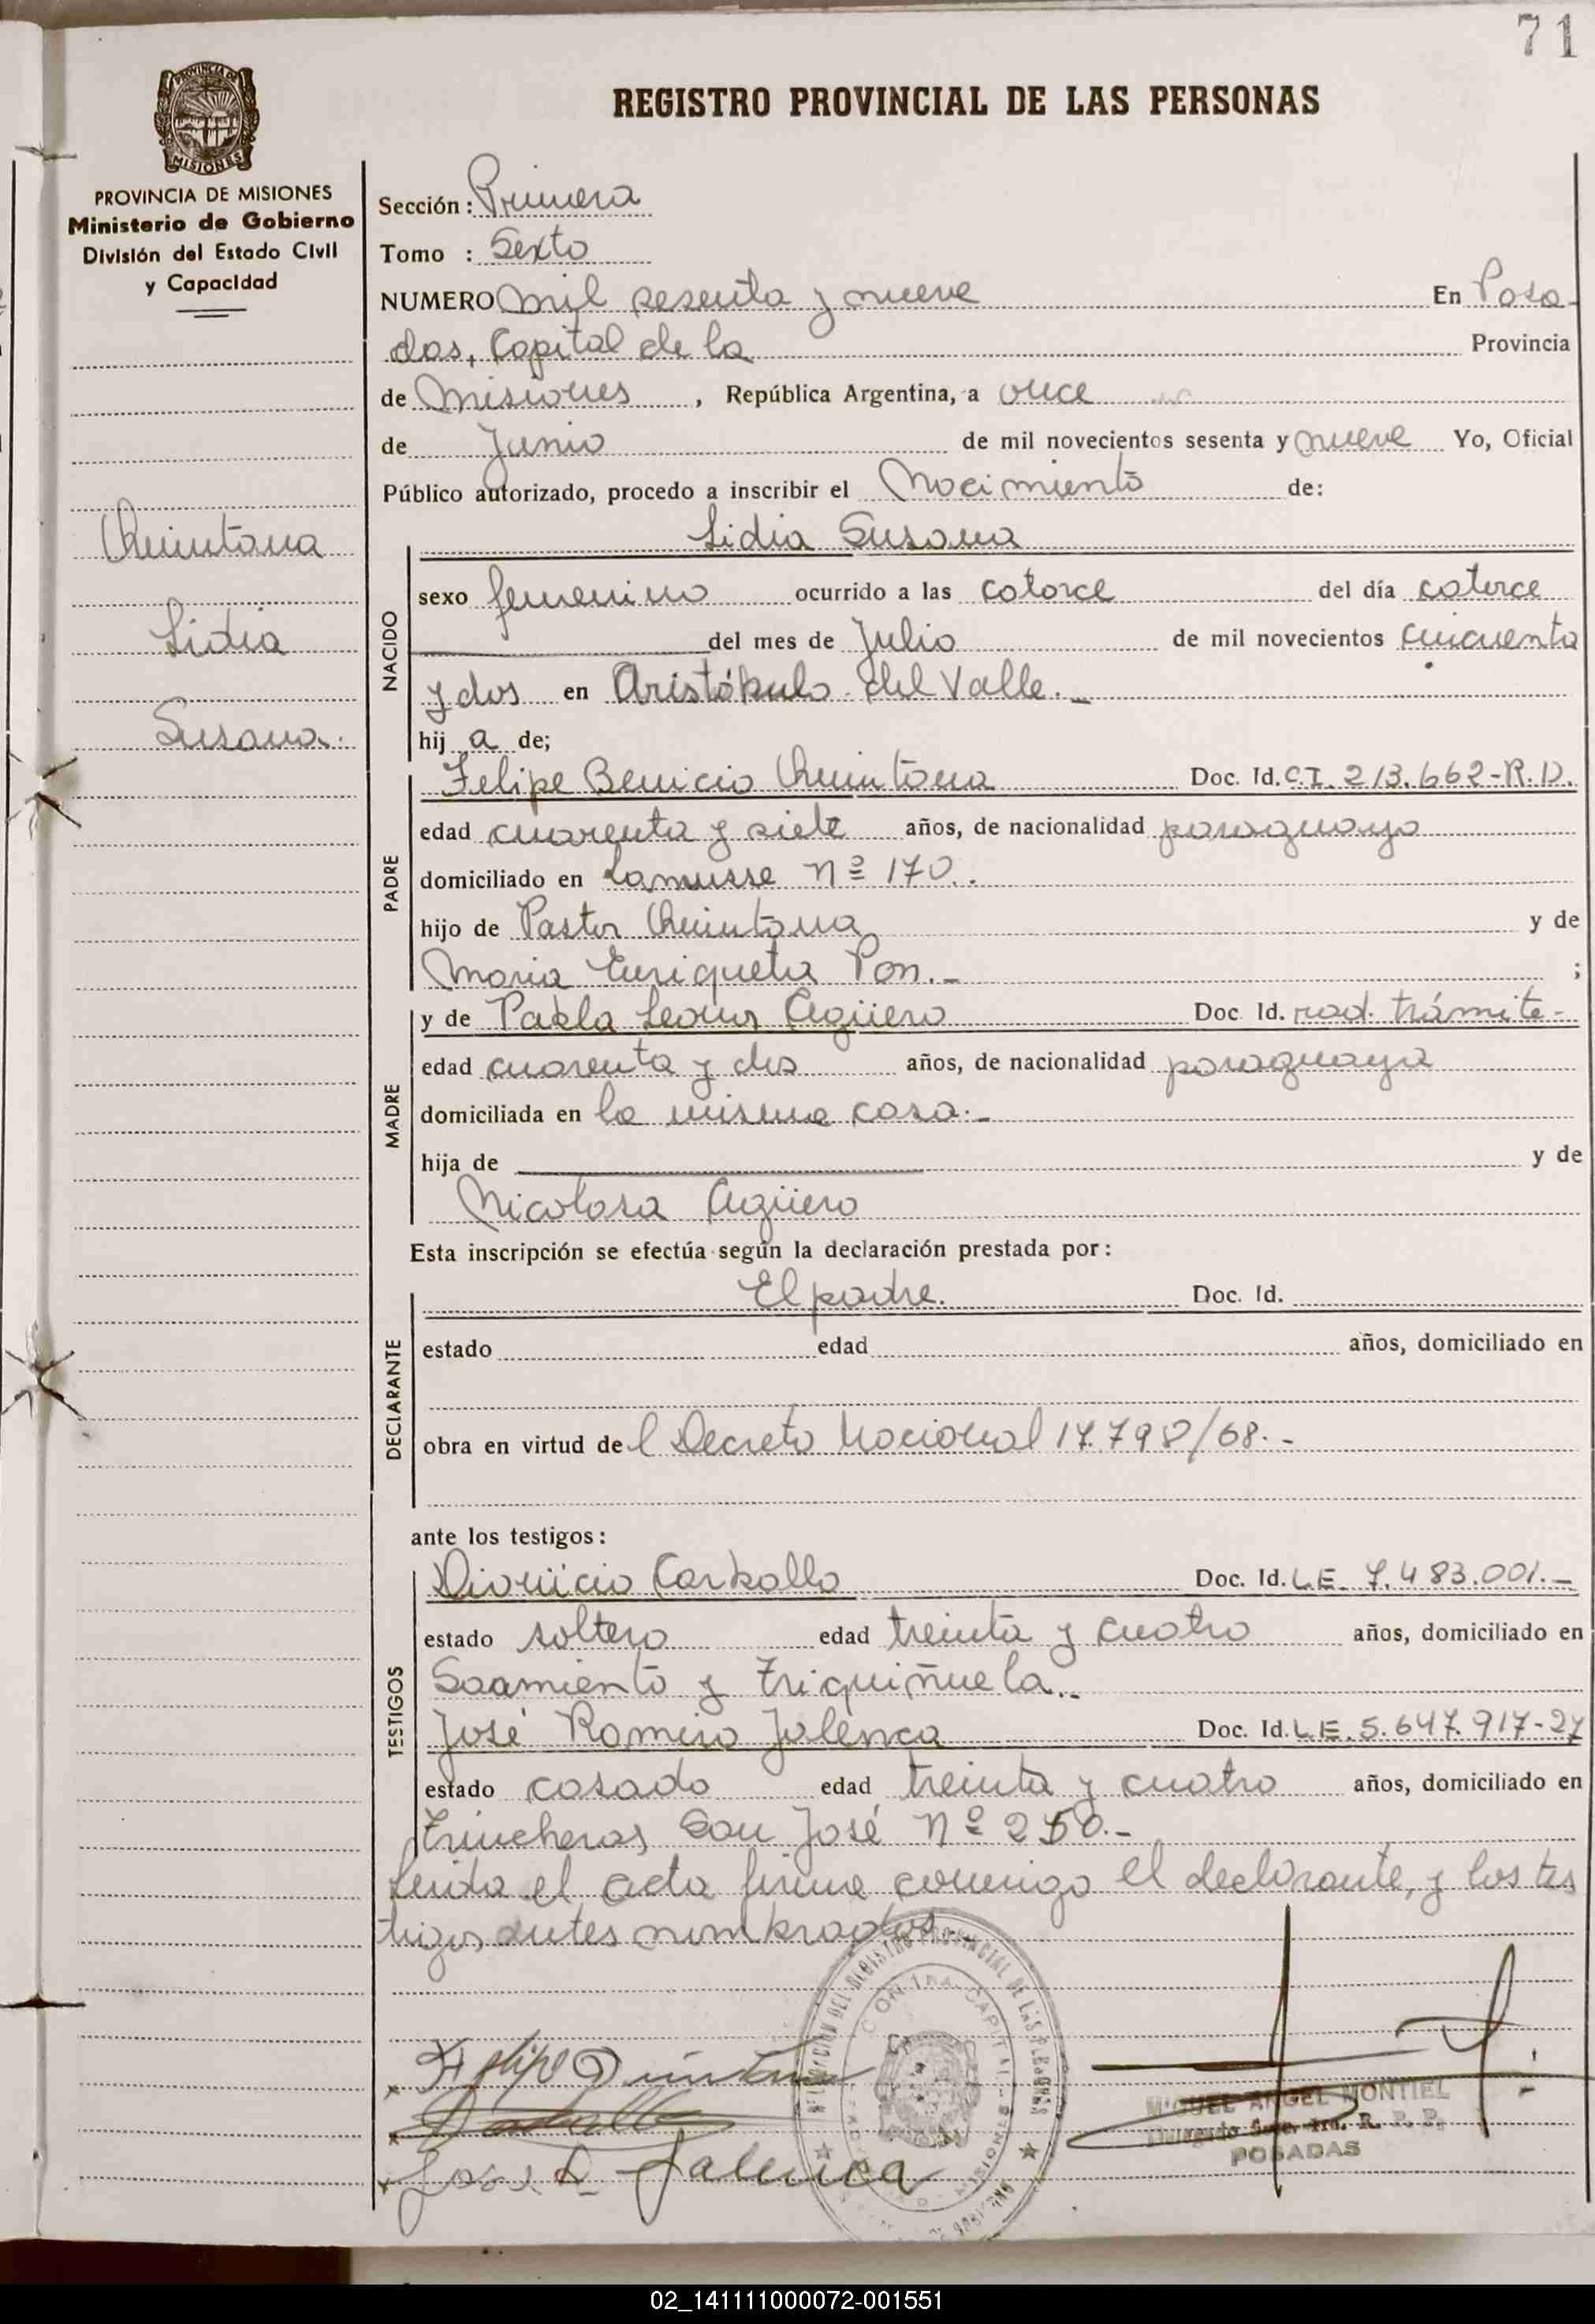 71
REGISTRO PROVINCIAL DE LAS PERSONAS
MISIONES
PROVINCIA DE MISIONES
Ministerio de Gobierno
División del Estado Civil
y Capacidad
Quintana
Lidia
Susana.
Sección: Primera
Tomo : Sexto
NUMERO mil sesenta y nueve En Posa-
das, Capital de la Provincia
de Misiones, República Argentina, a once
de Junio de mil novecientos sesenta y nueve Yo, Oficial
Público autorizado, procedo a inscribir el Nacimiento de:
NACIDO
Lidia Susana
sexo femenino ocurrido a las catorce del día catorce
del mes de Julio de mil novecientos cincuenta
y dos en Aristóbulo del Valle.-
hij a de;
PADRE
Felipe Benicio Quintana Doc. Id. C.I. 213.662-R.D.
edad cuarenta y siete años, de nacionalidad paraguaya
domiciliado en Lamusse Nº 170.
hijo de Pastor Quintana y de
Maria Enriqueta Pon.- ;
MADRE
y de Pabla Agüero Doc. Id. rad. trámite-
edad cuarenta y dos años, de nacionalidad paraguaya
domiciliada en la misma casa.-
hija de y de
Nicolasa Agüero
Esta inscripción se efectúa según la declaración prestada por:
DECLARANTE
El padre. Doc. Id.
estado edad años, domiciliado en
obra en virtud de l Decreto Nacional 17.798/68.-
ante los testigos:
TESTIGOS
Dionicio Carballo Doc. Id. L.E. 7.483.001.-
estado soltero edad treinta y cuatro años, domiciliado en
Saamiento y Triquiñuela.
José Romiro Jalenca Doc. Id. L.E. 5.647.917-27
estado casado edad treinta y cuatro años, domiciliado en
Trincheras San José Nº 250.-
Leida el acta firma conmigo el declarante, y los tes
tigos antes nombrados.
Felipe Quintana
Carballo
José R. Jalenca
REGISTRO PROVINCIAL DE LAS PERSONAS
MIGUEL ANGEL MONTIEL
Delegado Secc. 1ra. R. P. P.
POSADAS
02_141111000072-001551